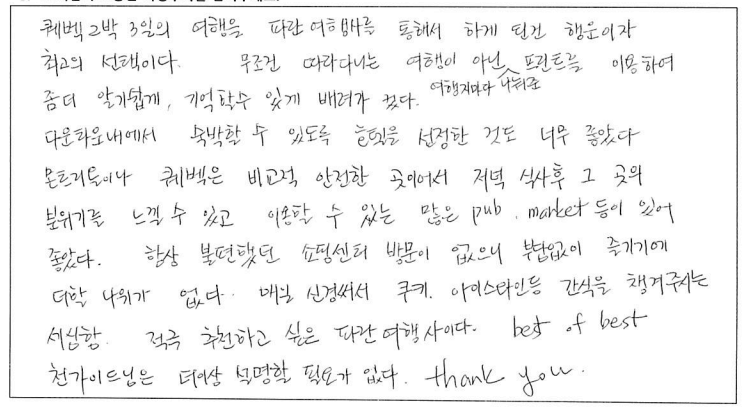 퀘벡 2박 3일의 여행을 파란여행사를 통해서 하게 된건 행운이자
최고의 선택이다. 무조건 따라다니는 여행이 아닌 프린트를 이용하여
여행지마다 나눠준
좀더 알기쉽게, 기억할수 있게 배려가 컸다.
다운타운내에서 숙박할 수 있도록 호텔을 선정한 것도 너무 좋았다
몬트리올이나 퀘벡은 비교적 안전한 곳이어서 저녁 식사후 그 곳의
분위기를 느낄 수 있고 이용할 수 있는 많은 pub, market 등이 있어
좋았다. 항상 불편했던 쇼핑센터 방문이 없으니 부담없이 즐기기에
더할 나위가 없다. 매일 신경써서 쿠키. 아이스와인등 간식을 챙겨주시는
세심함. 적극 추천하고 싶은 파란여행사이다. best of best
천가이드님은 더이상 설명할 필요가 없다. thank you.